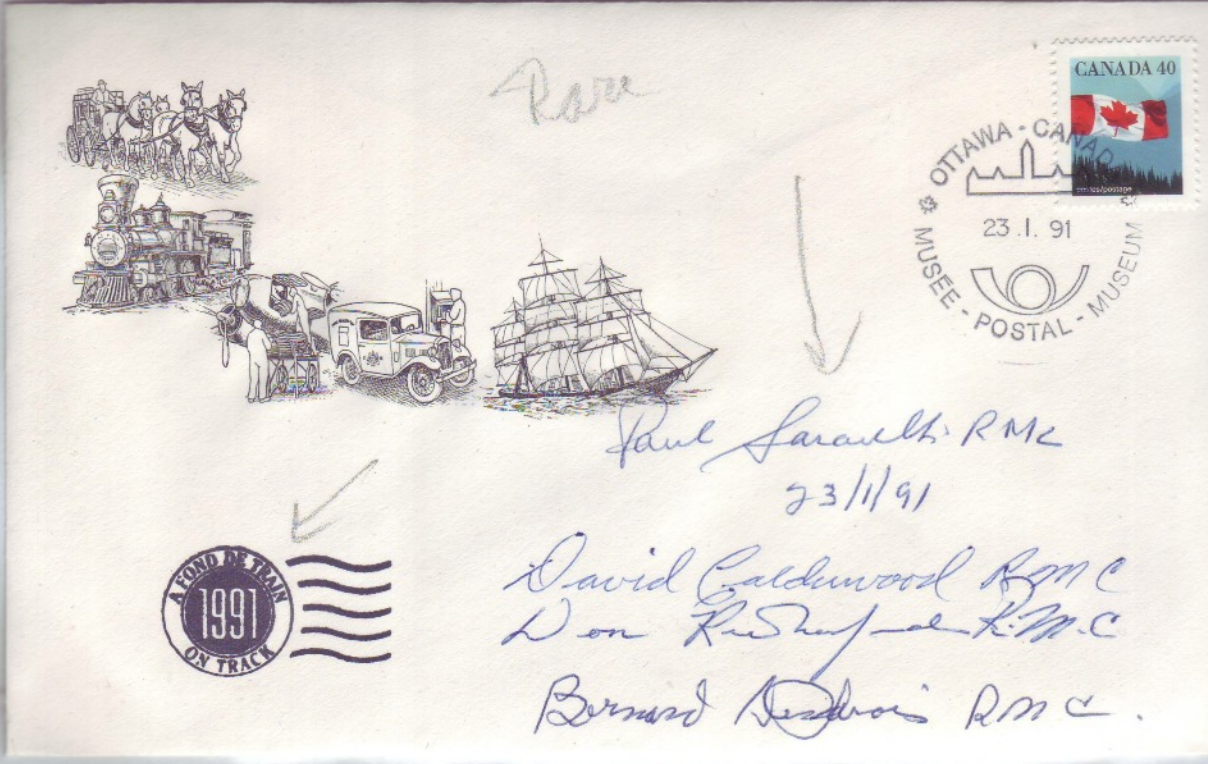 Rare
CANADA 40
postes/postage
OTTAWA - CANADA
23 . I. 91
MUSEE - POSTAL - MUSEUM
Paul R M C
23/1/91
A FOND DE TRAIN
1991
ON TRACK
David Calderwood R M C
Don Rutherford R. M. C
Bernard Desbrois R M C .